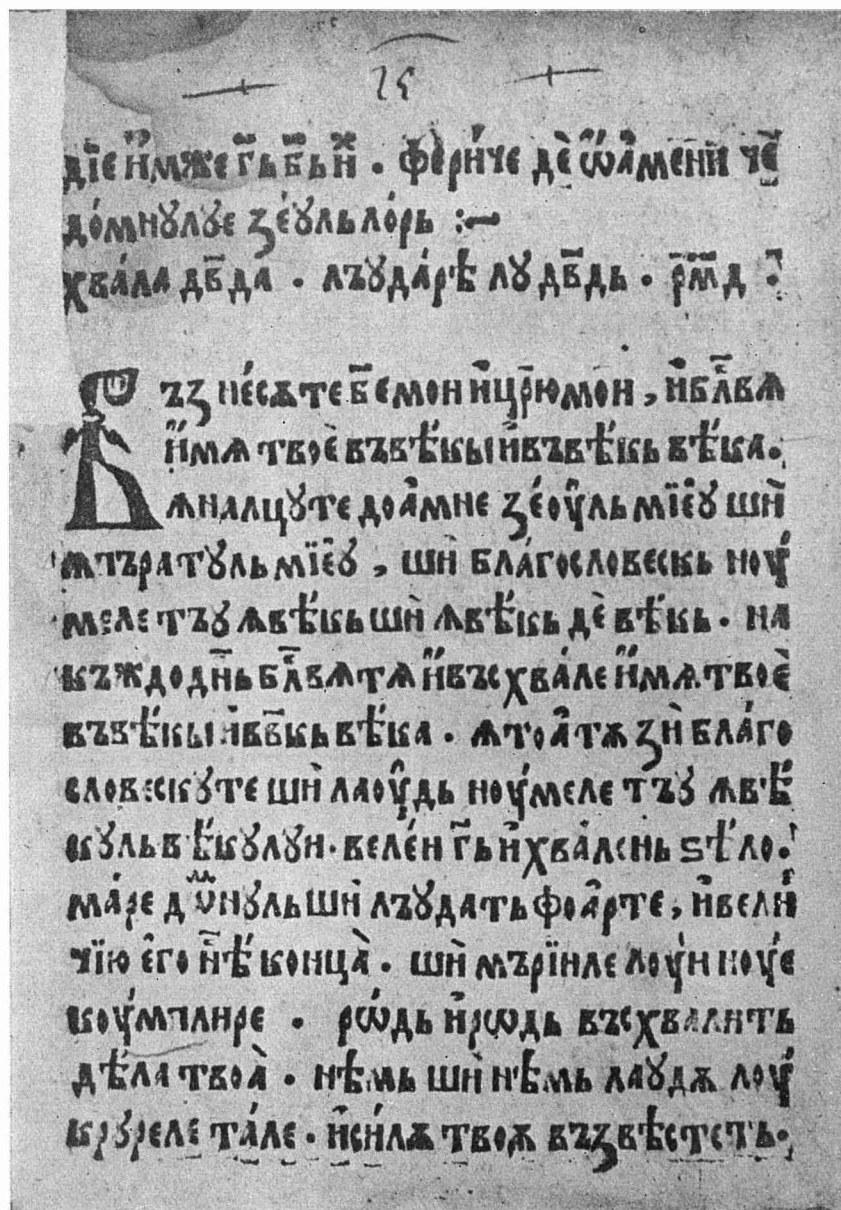 25
дїе и҆́мже г҃ь б҃ь и҆̀ · фери́че дѐ ѡ҆а҆мени че
до́мнꙋлꙋе зе́ꙋльло́рь :~
хва́ла дв҃да · лъꙋда́рѣ лꙋ дв҃дь · рм҃д ·
Въз не́сѫ те б҃е мои и҆цр҃ю мои , и҆бл҃вѧ
и҆́мѧ твоѐ въвѣ́кы и҆въвѣ́кь вѣ́ка ·
ѧналцꙋте доа҆мне зе́ѹль мїе҆ꙋ шѝ
ѫпъратꙋль мїе҆ꙋ , шѝ бла́гословескь ноу́
меле тъꙋ ѫвѣ́кь шѝ ѫвѣ́кь дѐ вѣ́кь · на
къждо дн҃ь бл҃вѧтѧ и҆въсхва́ле и҆́мѧ твоѐ
въвѣ́кы и҆вв҃кь вѣ́ка · ѫтоа҆тѫ зѝ бла́го
словескꙋте шѝ лаоу҆дь ноу́меле тъꙋ ѫвѣ́
кꙋль вѣ́кꙋлꙋи · веле́и г҃ь и҆хва́лень ѕѣ́ло ·
ма́ре дѡ҃мнꙋль шѝ лъꙋдать фоа҆рте , и҆вели́
чїю е҆го нѣ́ конца̀ · шѝ мърїиле лоу́и ноу́е
коу́мплире · рѡ́дь и҆рѡдь въсхвалить
дѣ́ла твоа̀ · нѣ́мь шѝ нѣ́мь лаꙋдѫ лоу́
крꙋреле та́ле · и҆си́лѫ твоѫ възвѣ́стеть ·